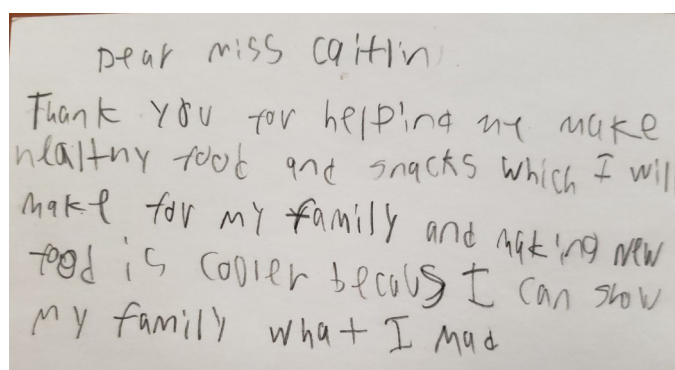 Dear miss Caitlin
Thank you for helping me make
healthy food and snacks which I will
make for my family and making new
food is cooler becaus I can show
my family what I mad